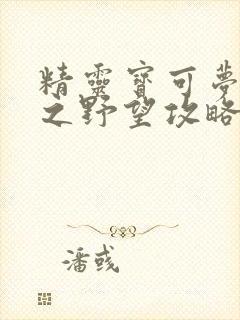 精靈寶可夢
之野望攻略
潘彧